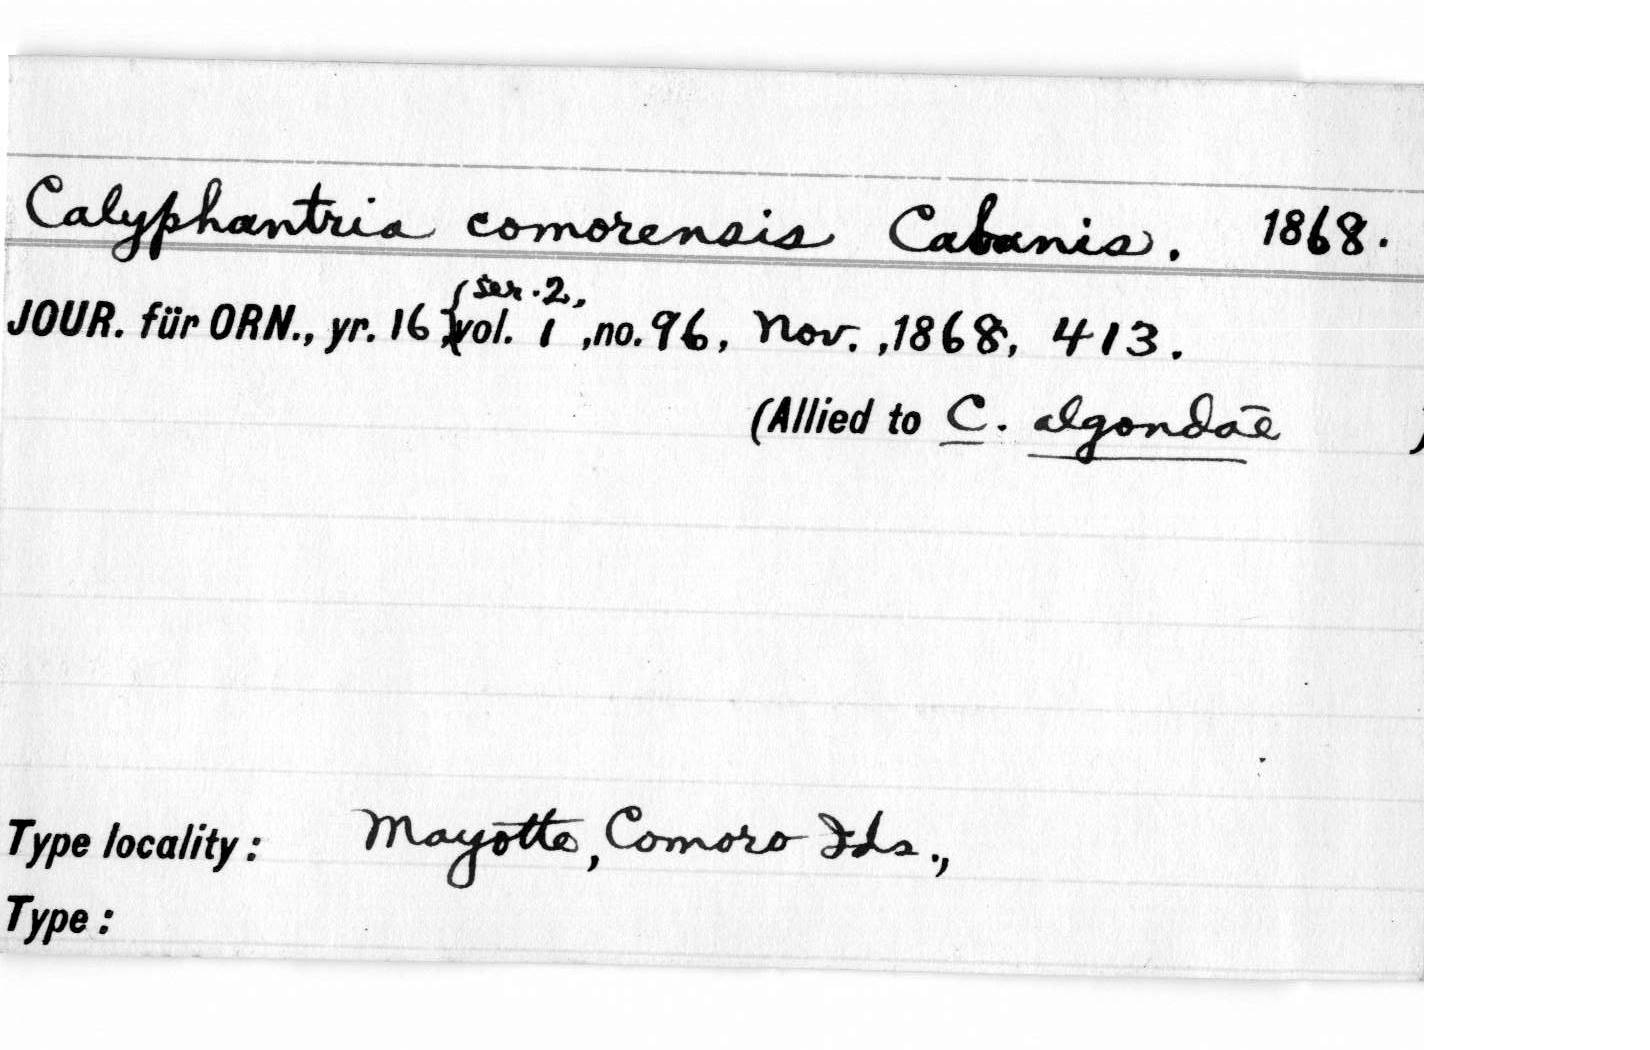 Calyphantria comorensis Cabanis. 1868.
JOUR. für ORN., yr. 16, {ser. 2, vol. 1, no. 96, Nov., 1868, 413.
(Allied to C. algondae )
Type locality: Mayotte, Comoro Ids.,
Type: